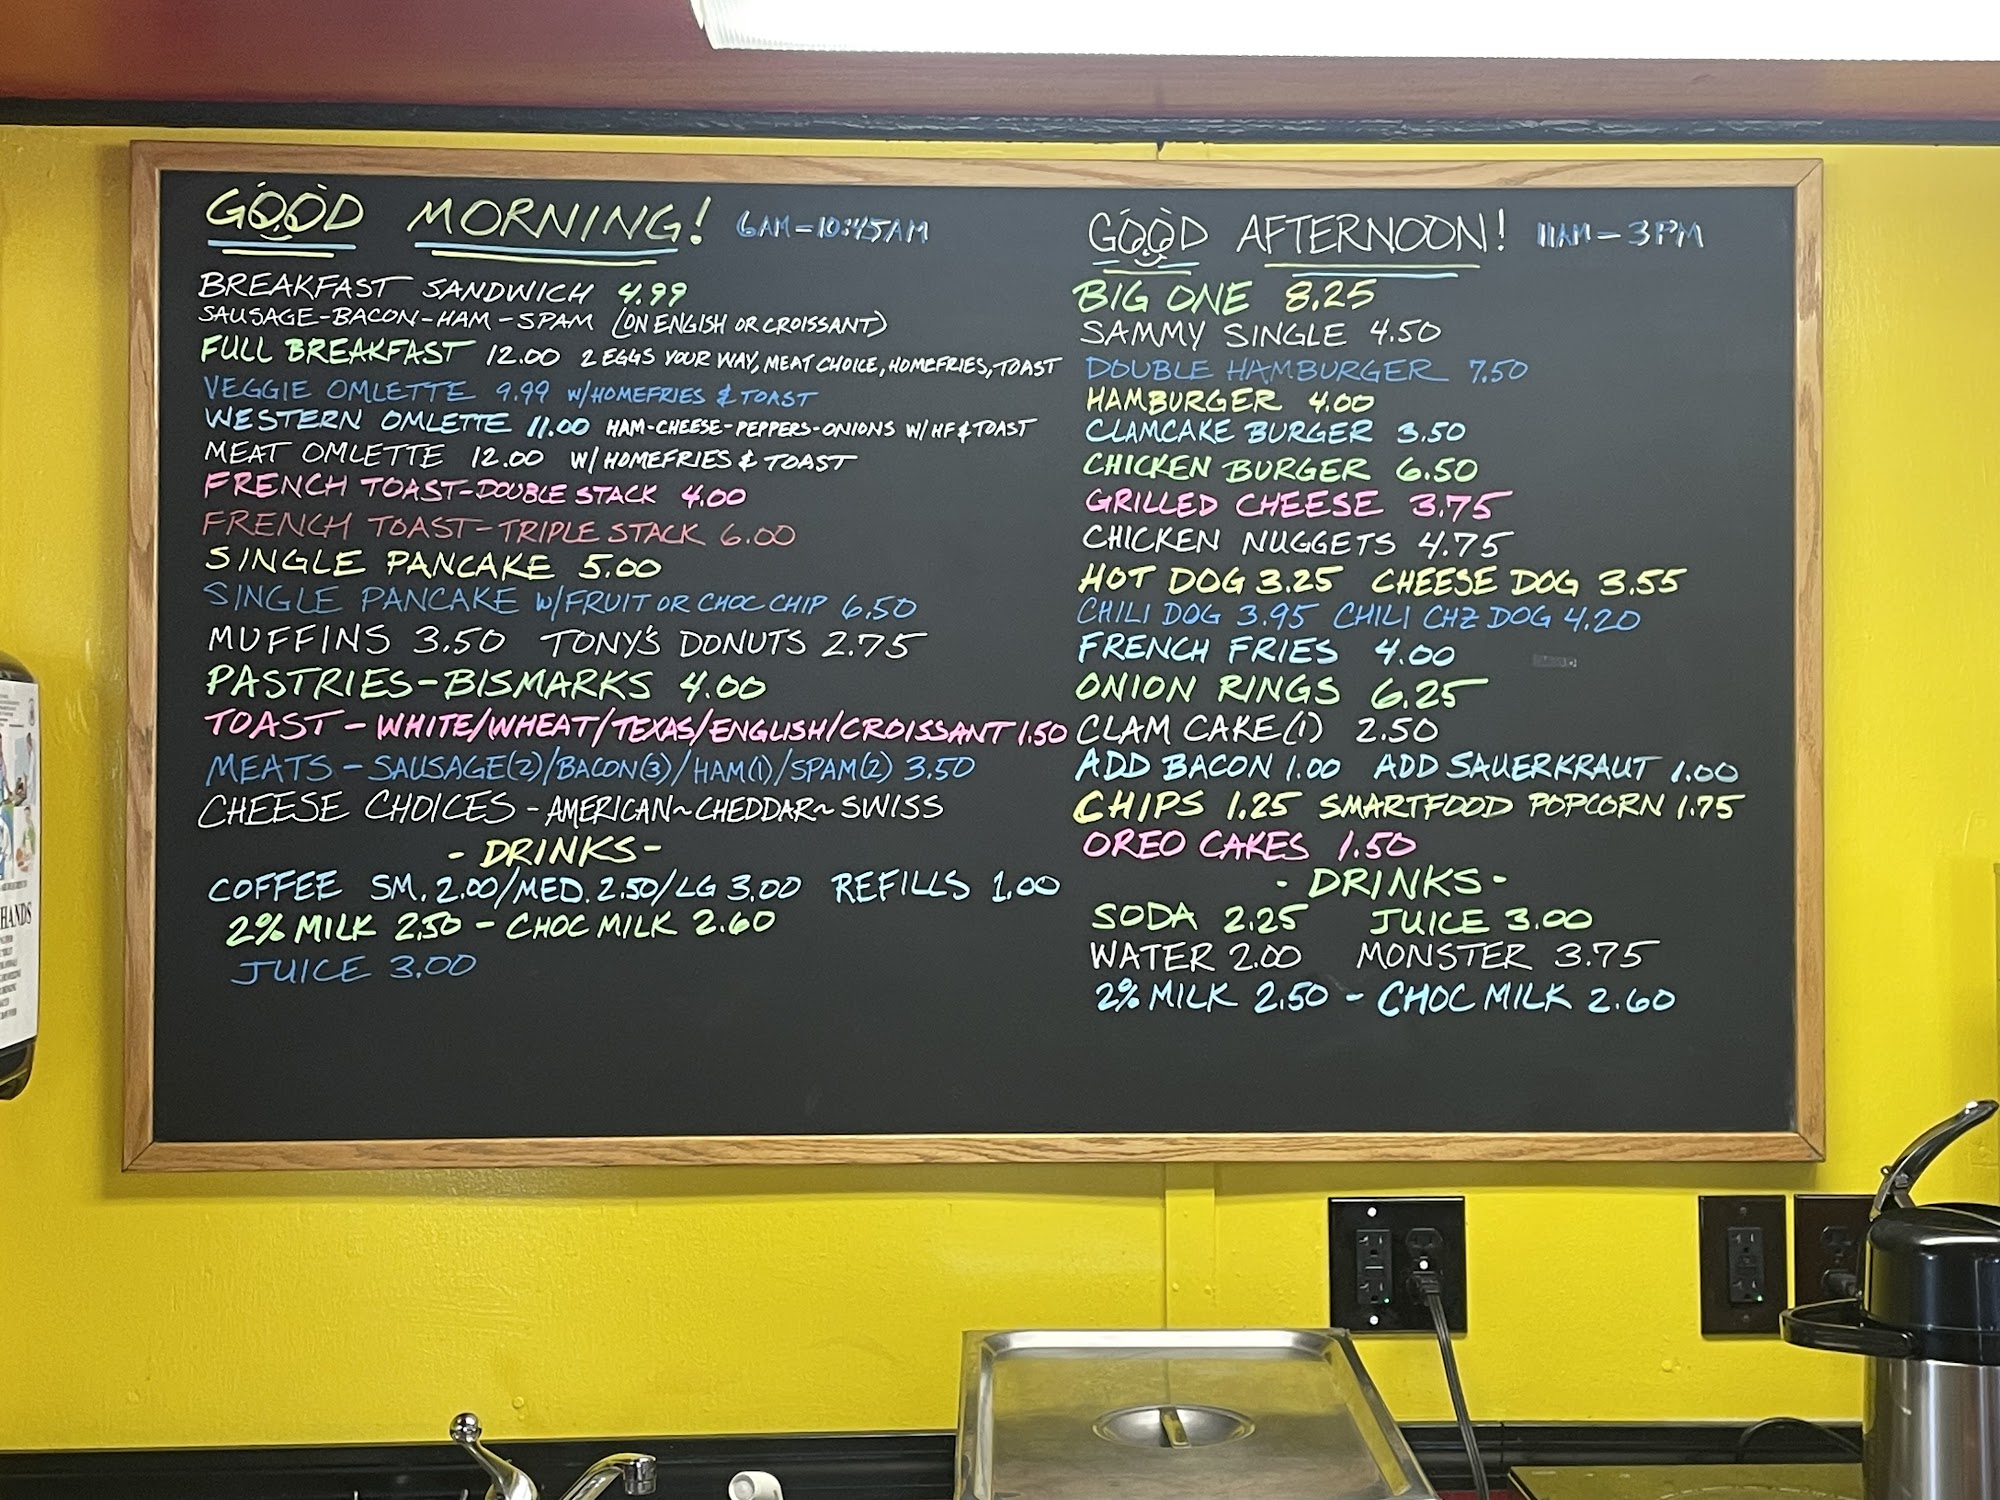 GOOD MORNING! 6AM-10:45AM
BREAKFAST SANDWICH 4.99
SAUSAGE-BACON-HAM-SPAM (ON ENGISH OR CROISSANT)
FULL BREAKFAST 12.00 2 EGGS YOUR WAY, MEAT CHOICE, HOMEFRIES, TOAST
VEGGIE OMLETTE 9.99 W/HOMEFRIES & TOAST
WESTERN OMLETTE 11.00 HAM-CHEESE-PEPPERS-ONIONS W/ HF & TOAST
MEAT OMLETTE 12.00 W/ HOMEFRIES & TOAST
FRENCH TOAST-DOUBLE STACK 4.00
FRENCH TOAST-TRIPLE STACK 6.00
SINGLE PANCAKE 5.00
SINGLE PANCAKE W/FRUIT OR CHOC CHIP 6.50
MUFFINS 3.50 TONY'S DONUTS 2.75
PASTRIES-BISMARKS 4.00
TOAST-WHITE/WHEAT/TEXAS/ENGLISH/CROISSANT 1.50
MEATS-SAUSAGE(2)/BACON(3)/HAM(1)/SPAM(2) 3.50
CHEESE CHOICES-AMERICAN~CHEDDAR~SWISS
-DRINKS-
COFFEE SM. 2.00/MED. 2.50/LG 3.00 REFILLS 1.00
2% MILK 2.50 - CHOC MILK 2.60
JUICE 3.00
GOOD AFTERNOON! 11AM-3PM
BIG ONE 8.25
SAMMY SINGLE 4.50
DOUBLE HAMBURGER 7.50
HAMBURGER 4.00
CLAMCAKE BURGER 3.50
CHICKEN BURGER 6.50
GRILLED CHEESE 3.75
CHICKEN NUGGETS 4.75
HOT DOG 3.25 CHEESE DOG 3.55
CHILI DOG 3.95 CHILI CHZ DOG 4.20
FRENCH FRIES 4.00
ONION RINGS 6.25
CLAM CAKE(1) 2.50
ADD BACON 1.00 ADD SAUERKRAUT 1.00
CHIPS 1.25 SMARTFOOD POPCORN 1.75
OREO CAKES 1.50
-DRINKS-
SODA 2.25 JUICE 3.00
WATER 2.00 MONSTER 3.75
2% MILK 2.50 - CHOC MILK 2.60
HANDS